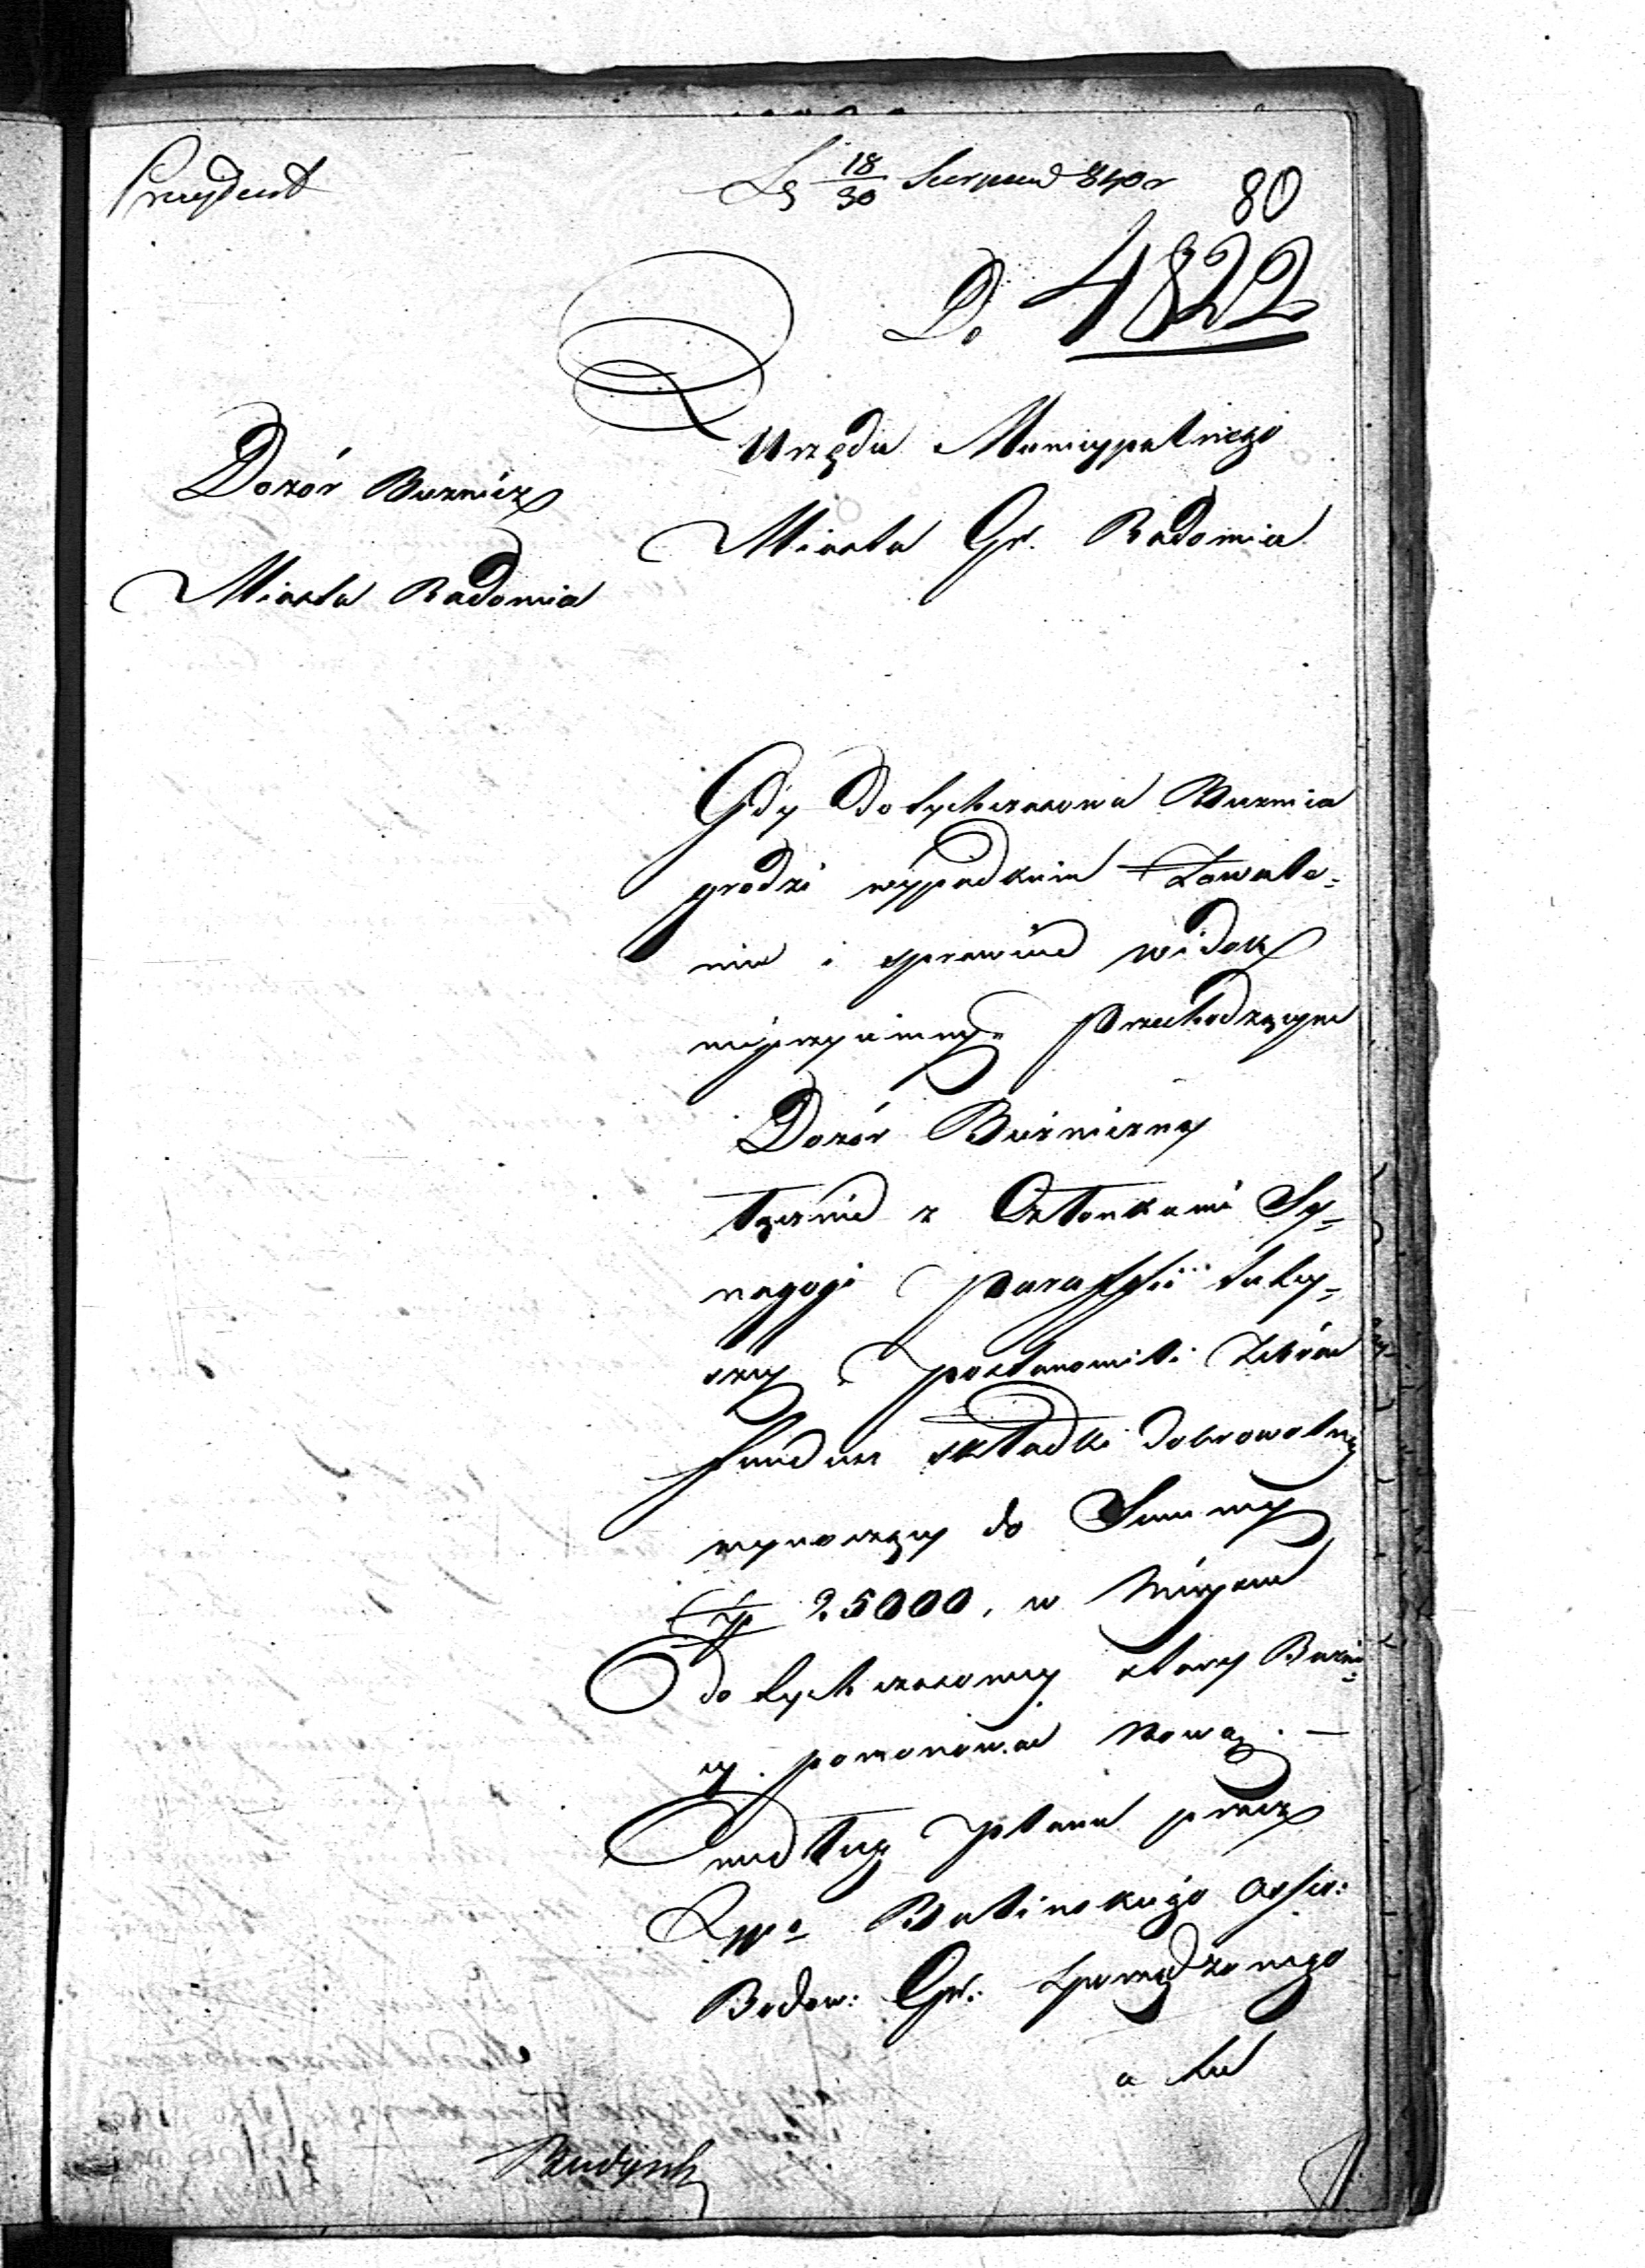 Prezydent
18/30 Sierpnia 840 r
80
D. 4822
Dozór Bużnicz
Miasta Radomia
Urzędu Municypalnego
Miasta Gr. Radomia
Gdy Dotychczasowa Bużnica
grozi wypadkiem Zawale-
nia i sprawia widok
nieprzyiemny Przechodzącym
Dozór Bużniczny
łącznie z Członkami Sy-
nagogi Paraffii tutey-
szey postanowili Zebrać
fundusz składki dobrowolney
wynoszący do Summy
Zł 25000, w mieysce
dotychczasowey starey Bużni-
cy. postanowiać Nową. —
według planu przez
Balińskiego Asses:
Budow: Gr: sporządzonego
a tu